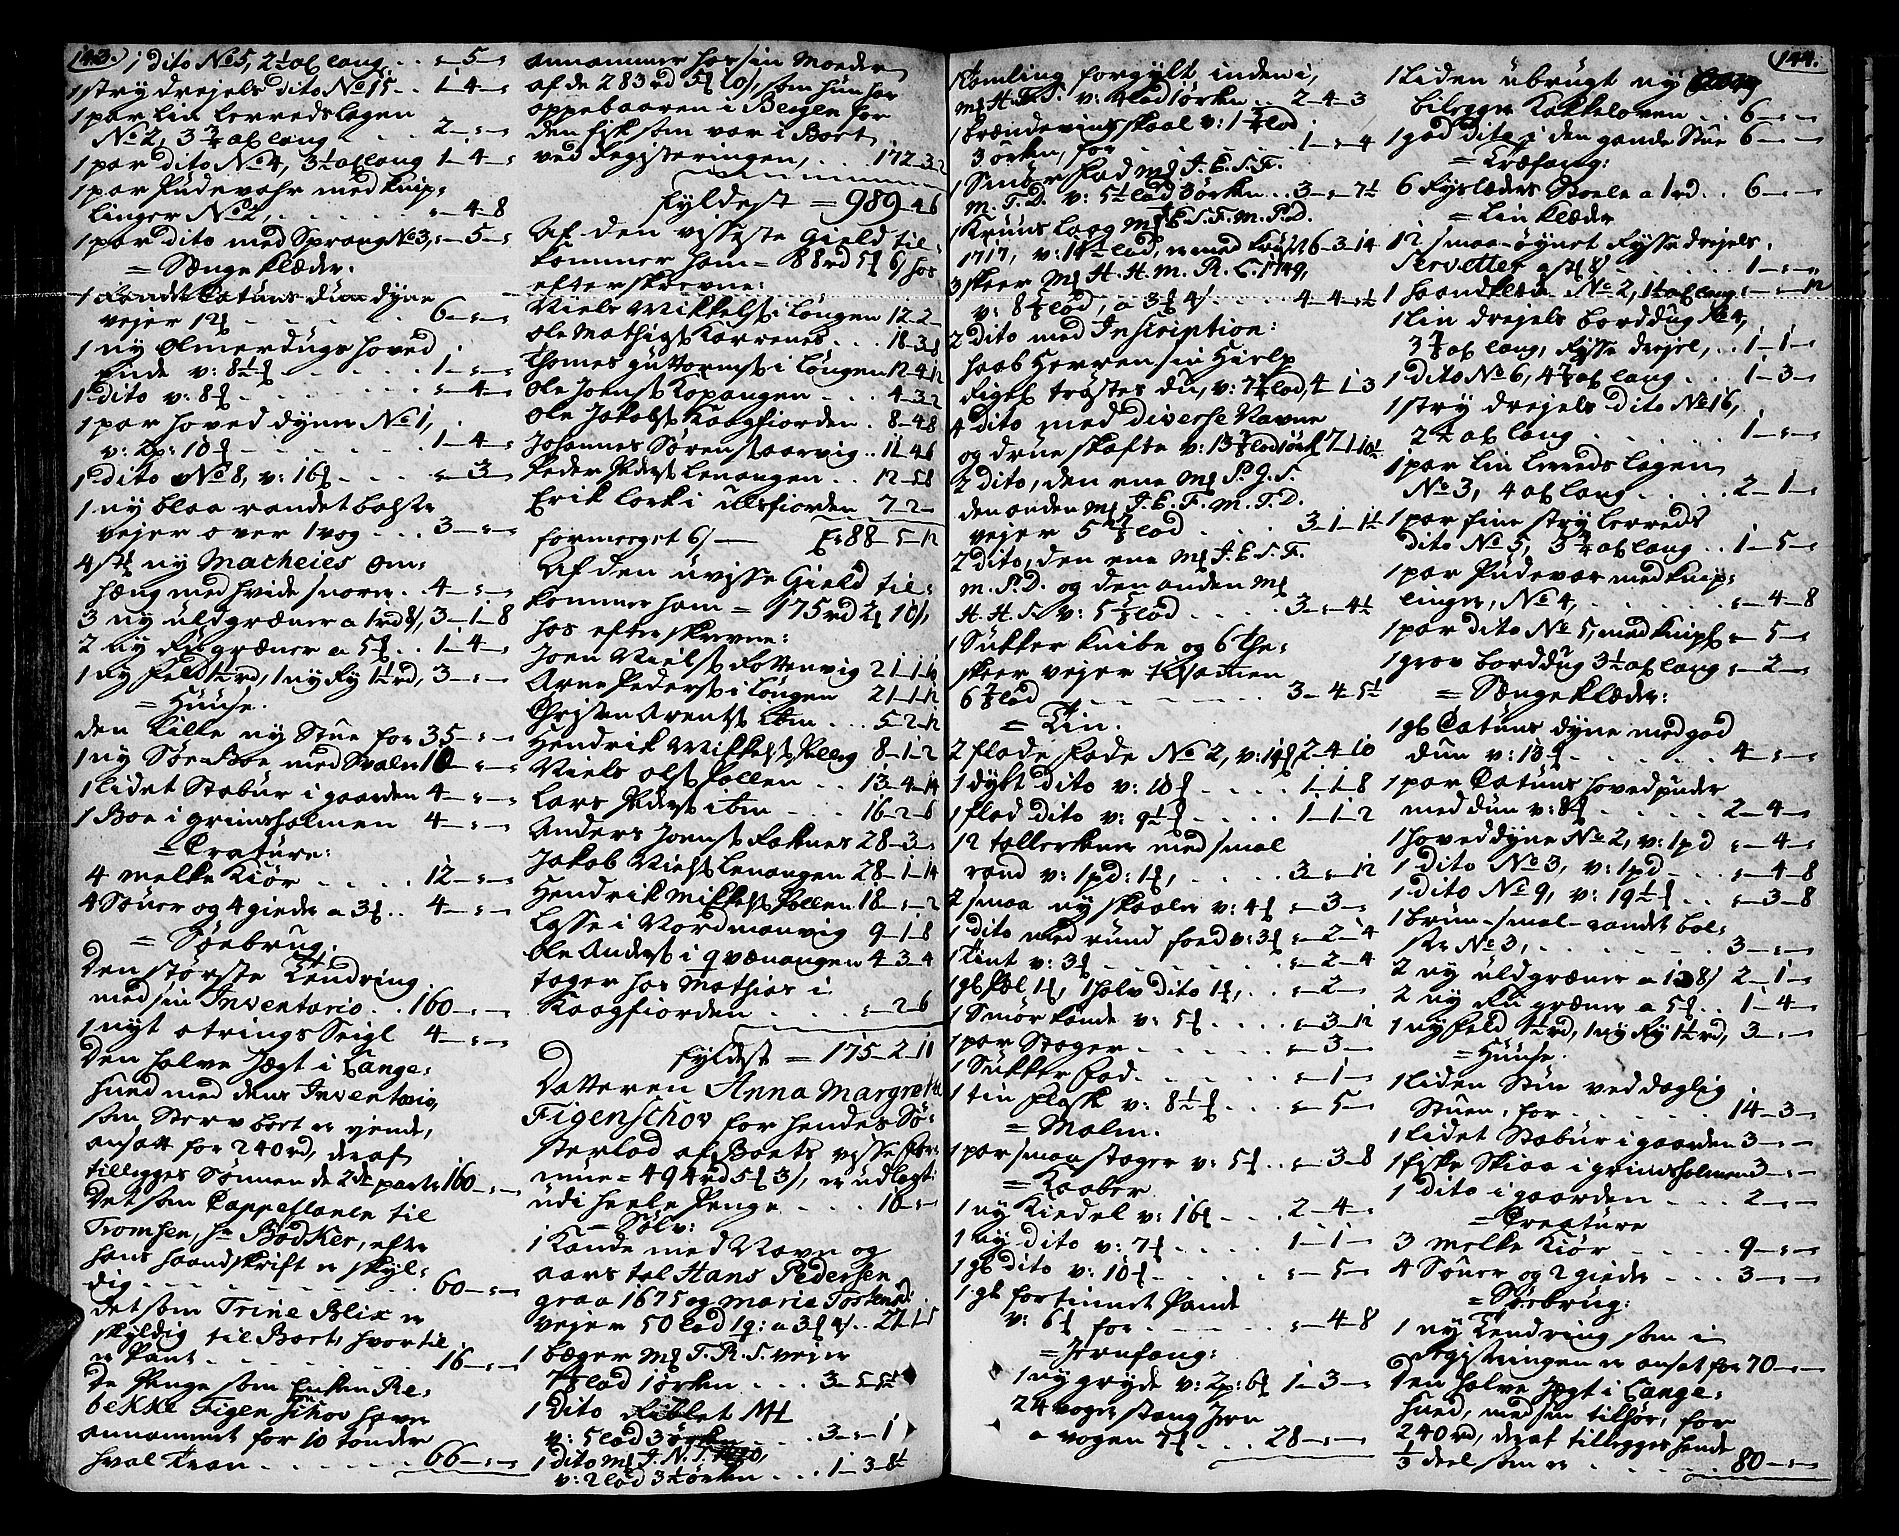 143.
1 dito No 5, 2½ al lang . . " 5 "
1 stry drejels dito No 15 . . 1 4 "
1 par Lin Lerreds lagen
No 2, 3¾ al lang . . 2 " "
1 par dito No 4, 3½ al lang 1 4 "
1 par Pudevahr med knip:
linger No 2, . . . . " 4 8
1 par dito med Sprang No 3, " 5 "
= Sænge klæder:
1 Randet Catuns dun dyne
vejer 12 . . . . 6 " "
1 ny Olmerdugs hoved
Ende v: 8½ . . . . 1 " "
1 dito v: 8 . . . . " 4 "
1 par hoved dyner No 1,
v: 2p: 10 . . . . 1 4 "
1 dito No 8, v: 16 . . . " 3 "
1 ny blaa randet bolster
vejer over 1 vog . . . 3 " "
4 st ny Matheies om:
hæng med hvide snorer . 4 " "
3 ny uldgræner a 1rd 8, 3 1 8
2 ny Rugræner a 5 . . 1 4 "
1 ny Feld 1½ rd, 1 ny Ry 1½ rd, 3 " "
= Huuse.
den lille ny Stue for 35 " "
1 ny Søe Boe med Svaler 10 " "
1 lidet Stabur i gaarden 4 " "
1 Boe i grinsholmen 4 " "
= Creature:
4 melke Kiør . . . . 12 " "
4 Søuer og 4 gieder a 3 . . 4 " "
= Søebrug:
Den største Tendring
med sin Inventario . . 160 " "
1 nyt otrings Seigl 4 " "
Den halve Jægt i Lange:
sund med dens Inventario,
som Sterv boet er ejende,
ansatt for 240 rd, deraf
tillegges Sønnen de 2de parter 160 " "
Det som Cappellanen til
Tromsen, Hr Bødker, efter
hans haandskrift er skyl:
dig . . . . 60 " "
Det som Trine Blix er
skyldig til Boet, hvortil
er Pant . . . . 16 " "
De Penge som Enken Re:
bekke Figenschov haver
annammet for 10 tønder
hval Tran . . . . 66 " "
annammer hos sin Moeder
af de 283 rd 5 10, som hun har
oppebaaren i Bergen for
den fisk som var i Boet
ved Registeringen, . . 172 3 2
fyldest = 989 4 6
Af den visseste Gield til:
kommer ham = 88 rd 5 6, hos
efterskrevne:
Niels Mikkels i Lougen 12 2 "
Ole Mathis Karrenes . . 18 3 8
Thomes Guttorms i Lougen 12 4 12
Ole Joens Kopangen . . . 4 3 2
Ole Jakobs Kaagfiorden . 8 4 8
Johannes Sørens aarvig . . 11 4 6
Peder Peders Lenangen . . 12 5 8
Erik Lork i Ulsfiorden 7 2 "
formeeget 6 — Er 88 5 12
Af den uvisse Gield til:
kommer ham = 175 rd 2 10,
hos efterskrevne:
Joen Niels Rottenvig 21 1 14
Arne Peders i Lougen 21 1 12
Christen Arents ibm . . . 5 2 12
Hendrik Mikkels Pollen 8 1 2
Niels Ols Pollen . . 13 4 14
Lars Peders ibm . . . 16 2 6
Anders Joens Raknes 28 3 "
Jakob Niels Lenangen 28 1 14
Hendrik Mikkels Pollen 18 " 2
Lasse i Nordmanvig 9 1 8
Ole Anders i qvænangen 4 3 4
tager hos Mathias i
Kaagfiorden . . . . " 2 6
fyldest = 175 2 10
Datteren Anna Margrete
Figenschov for hendes Sø:
sterlod af Boets visse For:
mue = 494 rd 5 3, er udlagt
udi heele Penge . . . 10 " "
= Sølv:
1 Kande med Navn og
aarstal Hans Pedersen
graa 1675 og Maria Torstens d:
vejer 50 lod 1 q: a 3 4 . . 27 1 5
1 bæger M T. R. S. vejer
7 lod 1 ørken . . . 3 5 5½
1 Dito Riblet MH
v: 5 lod 3 ørken . . . 3 " 1
1 dito M J. N. S.
v: 2 lod 3½ ørken . . . 1 3 8½
144.
1 Tomling forgylt inden i,
M H. F. S. v: 4 lod 1 ørken . . 2 4 3
1 brændeviinsskaal v: 1¾ lod
3 ørken, for . . . . 1 " 4
1 Smør Fad M J. E. S. F.
M. T. D. v: 5½ lod 3 ørken . . 3 " 7½
1 Kruus laag M E. S. F. M. P. D.
1717, v: 14 lod, er med Kruus 6 3 14
3 skeer M H. H. M. R. C. 1749,
v: 8½ lod, a 3 4 . . . 4 4 ½
2 dito med Inscription:
haab Herren sin Hielp
Rigt trøster du, v: 7¾ lod, 4 1 3
4 dito med diverse Navne
og drueskafter v: 13¾ lod 1 ørk 7 1 10½
2 dito, den ene M P. J. S.
den anden M J. E. F. M. T. D.
vejer 5⅞ lod . . . 3 1 1½
2 dito, den ene M J. E. S. F.
M. P. D. og den anden M
H. H. S. v: 5⅝ lod . . . . 3 " 4½
1 Sukker knibe og 6 the:
skeer vejer tilsamen
6⅞ lod . . . . 3 4 5½
= Tin.
2 flade Fade No 2, v: 14 2 4 10
1 dybt dito v: 10 . . . . 1 1 8
1 flad dito v: 9½ . . . . 1 1 2
12 tallerkener med smal
rand v: 1 pd: 1, . . . . 3 " 12
2 smaa ny skaaler v: 4 " 3 "
1 dito med rund foed v: 3 " 2 4
1 kint v: 3 . . . . " 2 4
1 gl Pæl 1, 1 halv dito 1, . . " 2 "
1 Smør kande v: 5 . . . . " 3 12
1 par Stager . . . . " 3 "
1 Sukker Fad . . . . " 1 "
1 tin flask v: 8½ . . . " 5 "
= Malm.
1 par smaa stager v: 5 . . " 3 8
= Kaaber
1 ny Kiedel v: 16 . . . 2 4 "
1 ny dito v: 7 . . . . 1 1 "
1 gl dito v: 10 . . . . " 5 "
1 gl fortinnet Pande
v: 6 for . . . . " 4 8
= Jernfang:
1 ny gryde v: 2p: 6 1 3 "
24 voger stang Jern
a vogen 7 . . . 28 " "
1 Liden ubrugt ny
bilegger Kakkeloven . . 6 " "
1 god dito i den gande Stue 6 " "
= Træfang:
6 Ryslæders Stoele a 1 rd . . 6 " "
= Lin klæder
12 smaa-øynet Rysse drejels.
Servetter a st 8 . . . . 1 " "
1 haandklæde No 2, 1½ al lang " " 12
1 Lin drejels borddug No 4,
3¾ al lang, Rysse drejel, . . 1 1 "
1 dito No 6, 4¾ al lang . . . 1 3 "
1 stry drejels dito No 16,
2¾ al lang . . . . 1 " "
1 par Lin lerreds lagen
No 3, 4 al lang . . . . 2 1 "
1 par fine stry lerreds
dito No 5, 3¾ al lang . . 1 5 "
1 par Pudevar med knip:
linger, No 4, . . . . " 4 8
1 par dito No 5, med knipl " 5 "
1 grov borddug 3½ al lang " 2 "
= Sænge klæder:
1 gl Catuns dyne med god
dun v: 13 . . . . 4 " "
1 par Catuns hovedpuder
med dun v: 8 . . . . 2 4 "
1 hoveddyne No 2, v: 1 pd " 4 "
1 dito No 3, v: 1 pd . . . " 4 8
1 dito No 9, v: 19½ . . " 3 8
1 bruun-smal-randet bol:
ster No 3, . . . . 3 " "
2 ny uldgræner a 1 8 2 1 "
2 ny Ru græner a 5 . . 1 4 "
1 ny Feld 1½ rd, 1 ny Ry 1½ rd, 3 " "
= Huuse.
1 Liden Stue ved daglig
Stuen, for . . . . 14 3 "
1 lidet Stabur i gaarden 3 " "
1 fiske Skiaa i grinsholmen 3 " "
1 dito i gaarden . . . 2 " "
= Creature
3 melke Kiør . . . . 9 " "
4 Søuer og 2 gieder . . . 3 " "
= Søebrug:
1 ny Tendring som i
Registringen er ansat for 70 " "
Den halve Jægt i Lange:
sund, med sin tilhør, for
240 rd, deraf tillegges hende
⅓ deel som er . . . . 80 " "